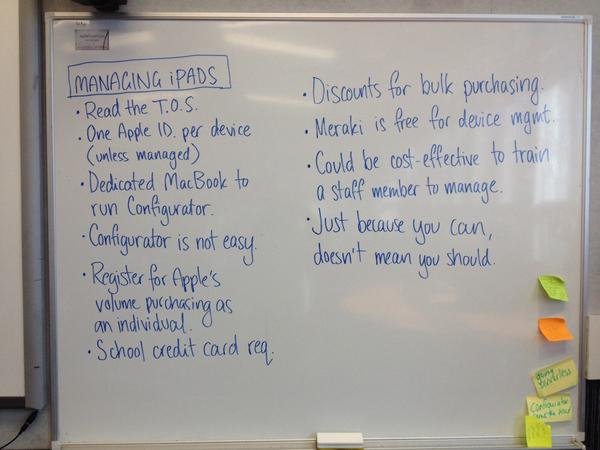 MANAGING iPADS
• Read the T.O.S.
• One Apple ID. per device
(unless managed)
• Dedicated MacBook to
run Configurator.
• Configurator is not easy.
• Register for Apple's
volume purchasing as
an individual.
• School credit card req.
• Discounts for bulk purchasing.
• Meraki is free for device mgmt.
• Could be cost-effective to train
a staff member to manage.
• Just because you can,
doesn't mean you should.
going
Configurator